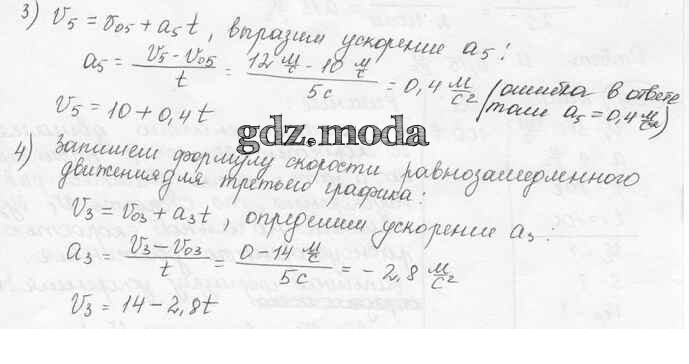 3) V₅ = V₀₅ + a₅t, выразим ускорение a₅:
a₅ = (V₅ - V₀₅)/t = (12 м/с - 10 м/с)/5с = 0,4 м/с² (ошибка в ответе
там a₅ = 0,4 м/с)
V₅ = 10 + 0,4t
gdz.moda
4) Запишем формулу скорости равнозамедленного
движения для третьего графика:
V₃ = V₀₃ + a₃t, определим ускорение a₃:
a₃ = (V₃ - V₀₃)/t = (0 - 14 м/с)/5с = -2,8 м/с²
V₃ = 14 - 2,8t